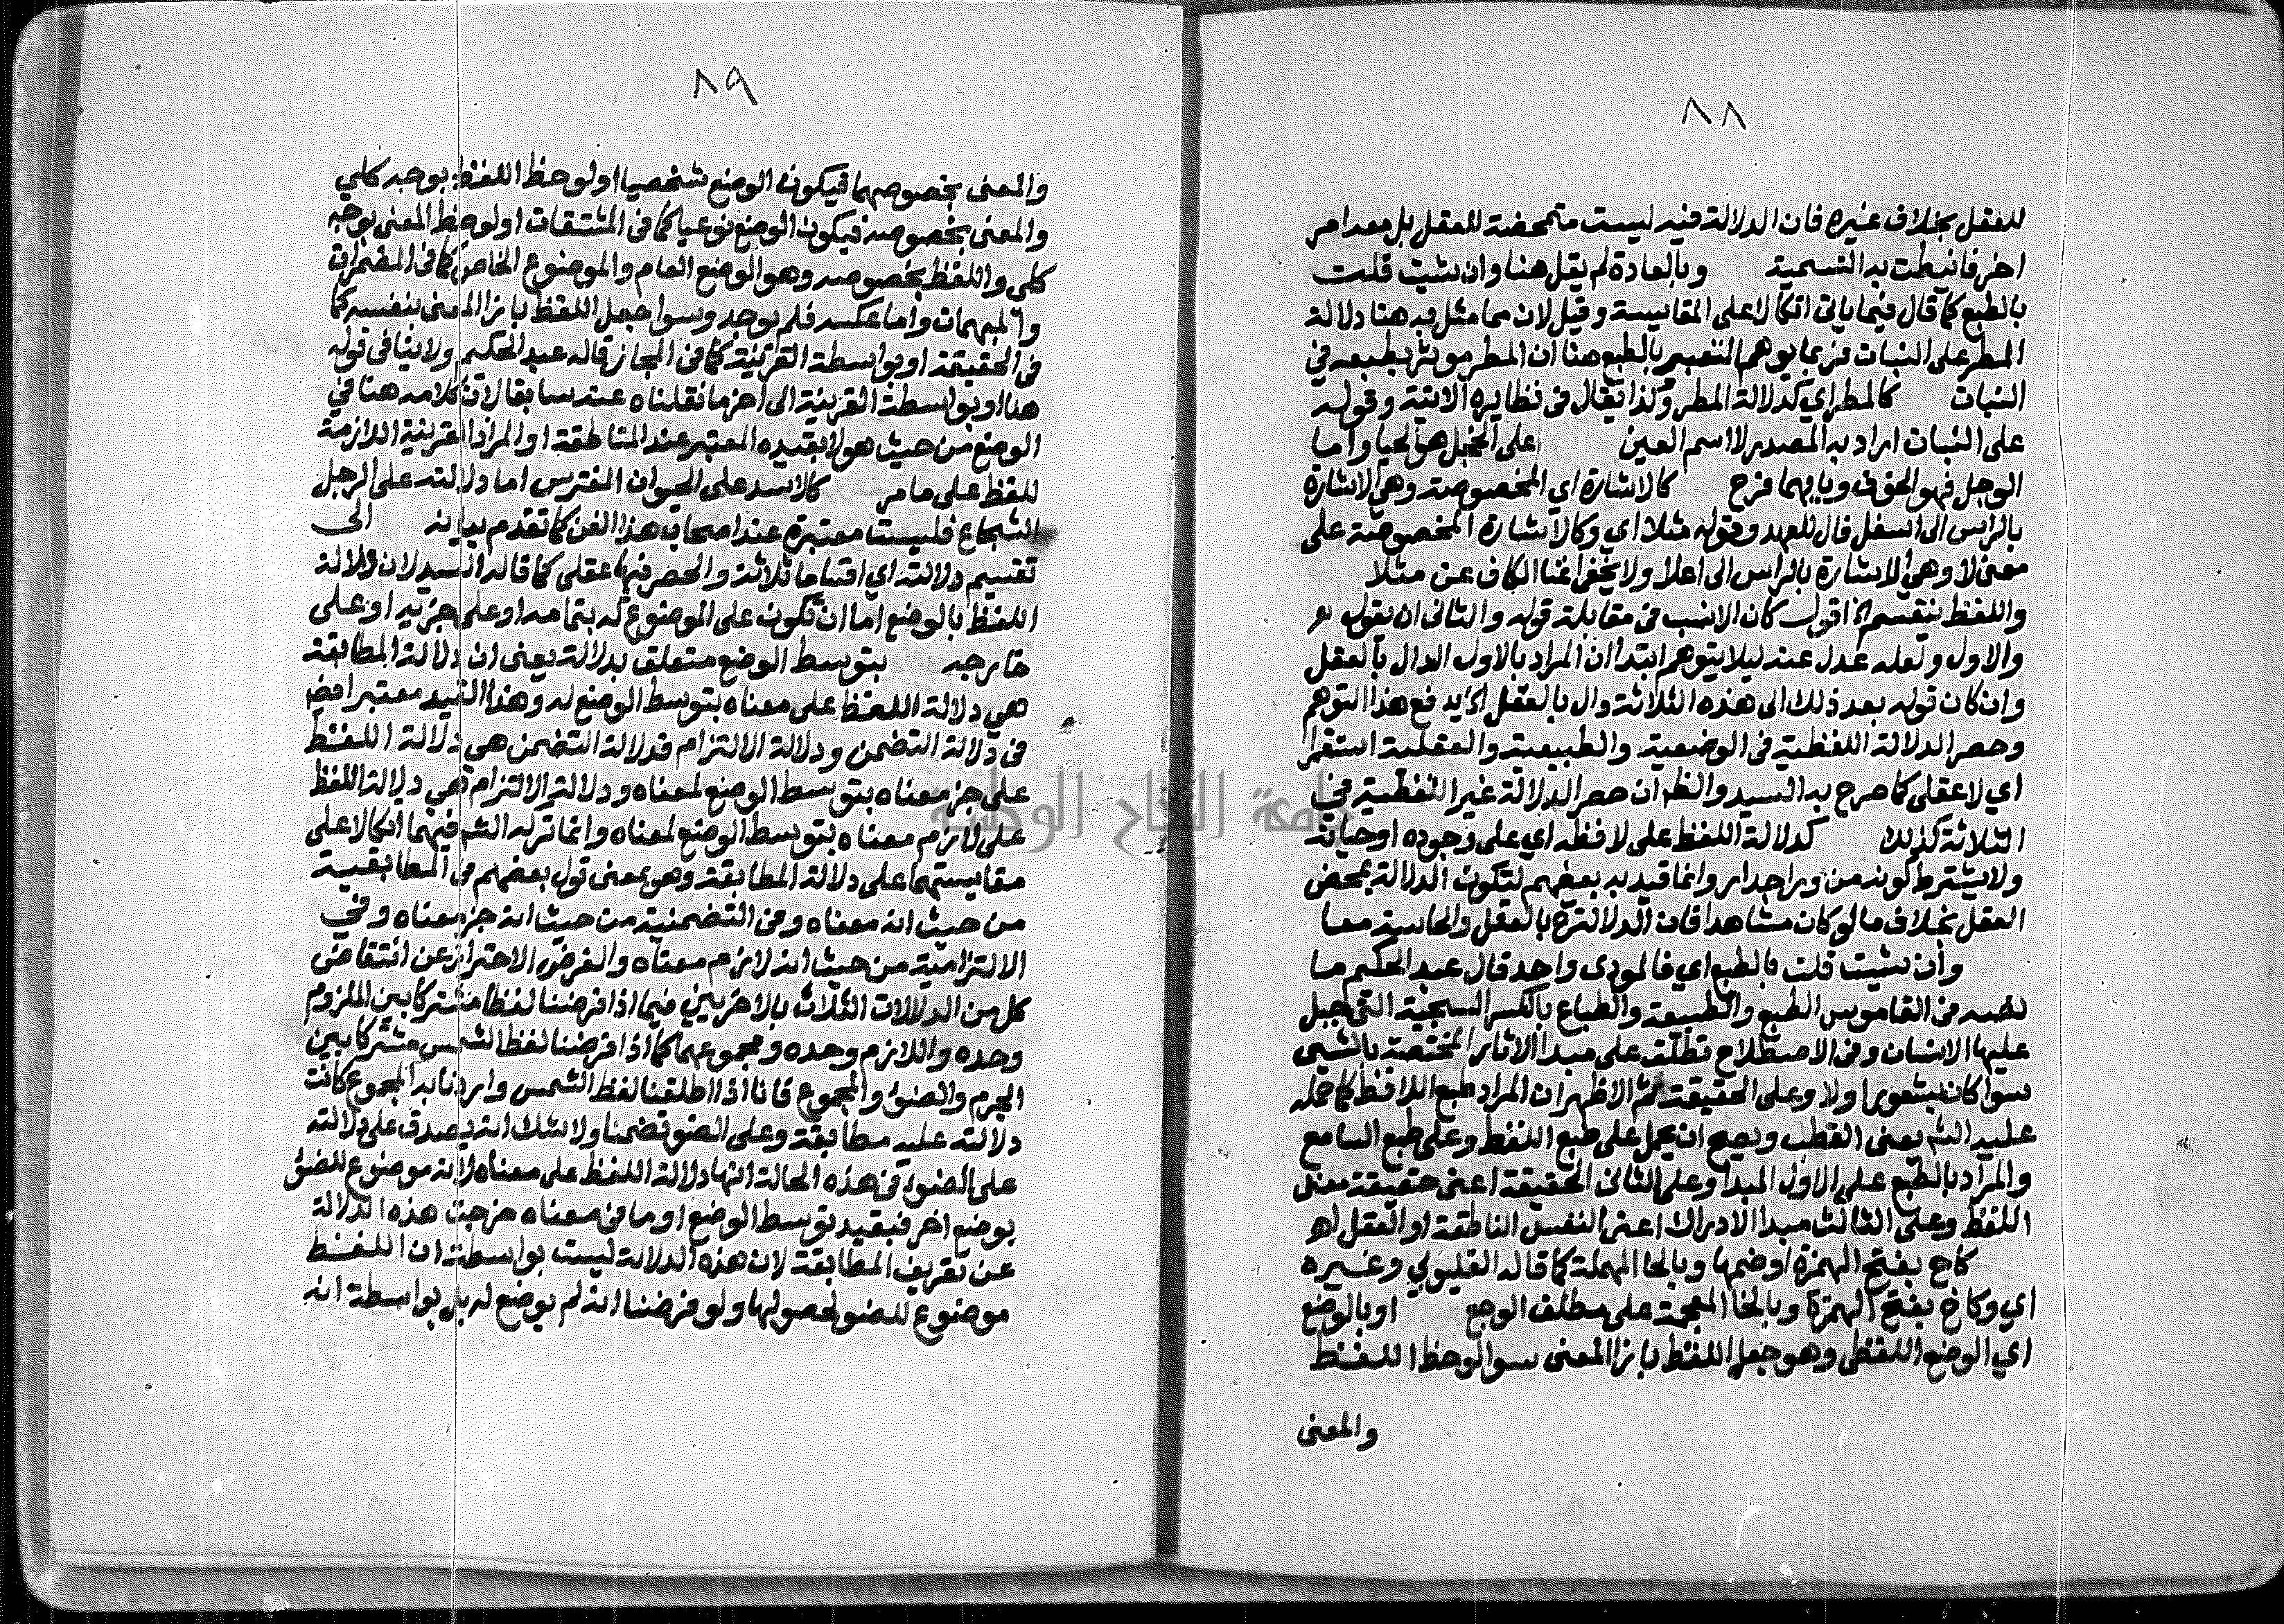 ٨٨
للعقل بخلاف غيره فان الدلالة فيه ليست متمحضة للعقل بل معه امر
اخر فانيطت به التسمية وبالعادة لم يقل هنا وان شيت قلت
بالطبع كما قال فيما ياتي اتكالا على المقايسة وقيل لان مما مثل به هنا دلالة
المطر على النبات فربما يوهم التعبير بالطبع هنا ان المطر موثر بطبعه في
النبات كالمطر اي كدلالة المطر وكذا يقال في نظايره الاتية وقوله
على النبات اراد به المصدر لا اسم العين على الخجل هو الحيا واما
الوجل فهو الخوف وبابهما فرح كالاشارة اي المخصوصة وهي الاشارة
بالراس الى اسفل فال للعهد وقوله مثلا اي وكالاشارة المخصوصة على
معنى لا وهي الاشارة بالراس الى اعلا ولا يخفى اغنا الكاف عن مثلا
واللفظ ينقسم الخ اقول كان الانسب في مقابلة قوله والثاني ان يقول
والاول ولعله عدل عنه ليلا يتوهم ابتدا ان المراد بالاول الدال بالعقل
وان كان قوله بعد ذلك الى هذه الثلاثة دال بالعقل الخ يدفع هذا التوهم
وحصر الدلالة اللفظية في الوضعية والطبيعية والعقلية استقرا
اي لا عقلي كما صرح به السيد والظ ان حصر الدلالة غير اللفظية في
الثلاثة كذلك كدلالة اللفظ على لافظه اي على وجوده او حياته
ولا يشترط كونه من ورا جدار وانما قيد به بعضهم لتكون الدلالة بمحض
العقل بخلاف ما لو كان مشاهدا فان الدلالة ح بالعقل والحاسة معا
وان شيت قلت بالطبع اي فالمودى واحد قال عبد الحكيم ما
نصه في القاموس الطبع والطبيعة والطباع بالكسر السجية التي جبل
عليها الانسان وفي الاصطلاح تطلق على مبدا الاثار المختصة بالشي
سوا كان بشعور اولا وعلى الحقيقة ثم الاظهر ان المراد طبع اللافظ كما حمله
عليه الشم يعني القطب ويصح ان يحمل على طبع اللفظ وعلى طبع السامع
والمراد بالطبع على الاول المبدا وعلى الثاني الحقيقة اعني حقيقة معنى
اللفظ وعلى الثالث مبدا الادراك اعني النفس الناطقة او العقل اهـ
كاح بفتح الهمزة او ضمها وبالحا المهملة كما قاله القليوبي وغيره
اي وكاخ بفتح الهمزة وبالخا المعجمة على مطلق الوجع او بالوضع
اي الوضع اللفظي وهو جعل اللفظ بازا المعنى سوا لوحظ اللفظ
والمعنى
٨٩
والمعنى بخصوصهما فيكون الوضع شخصيا او لوحظ اللفظ بوجه كلي
والمعنى بخصوصه فيكون الوضع نوعيا كما في المشتقات او لوحظ المعنى بوجه
كلي واللفظ بخصوصه وهو الوضع العام والموضوع الخاص كما في المضمرات
والمبهمات واما عكسه فلم يوجد وسوا جعل اللفظ بازا المعنى بنفسه كما
في الحقيقة او بواسطة القرينة كما في المجاز قاله عبد الحكيم ولا ينافي قوله
هنا او بواسطة القرينة الى اخر ما نقلناه عنه سابقا لان كلامه هنا في
الوضع من حيث هو لا بقيده المعتبر عند المناطقة او المراد القرينة اللازمة
للفظ على ما مر كالاسد على الحيوان المفترس اما دلالته على الرجل
الشجاع فليست معتبرة عند اصحاب هذا الفن كما تقدم بيانه الى
تقسيم دلالته اي اقسامها ثلاثة والحصر فيها عقلي كما قاله السيد لان دلالة
اللفظ بالوضع اما ان تكون على الموضوع له بتمامه او على جزيه او على
خارجه بتوسط الوضع متعلق بدلالة يعني ان دلالة المطابقة
هي دلالة اللفظ على معناه بتوسط الوضع له وهذا القيد معتبر ايض
في دلالة التضمن ودلالة الالتزام فدلالة التضمن هي دلالة اللفظ
على جز معناه بتوسط الوضع لمعناه ودلالة الالتزام هي دلالة اللفظ
على لازم معناه بتوسط الوضع لمعناه وانما تركه الشم فيهما اتكالا على
مقايستهما على دلالة المطابقة وهو بمعنى قول بعضهم في المطابقية
من حيث انه معناه وفي التضمنية من حيث انه جز معناه وفي
الالتزامية من حيث انه لازم معناه والغرض الاحتراز عن انتقاض
كل من الدلالات الثلاث بالاخريين فيما اذا فرضنا لفظا مشتركا بين الملزوم
وحده واللازم وحده ومجموعهما كما اذا فرضنا لفظ الشمس مشتركا بين
الجرم والضوء والمجموع فانا اذا اطلقنا لفظ الشمس واردنا به المجموع كانت
دلالته عليه مطابقة وعلى الضو تضمنا ولا شك انه يصدق على دلالته
على الضوء في هذه الحالة انها دلالة اللفظ على معناه لانه موضوع للضوء
بوضع اخر فبقيد توسط الوضع او ما في معناه خرجت هذه الدلالة
عن تعريف المطابقة لان هذه الدلالة ليست بواسطة ان اللفظ
موضوع للضو لحصولها ولو فرضنا انه لم يوضع له بل بواسطة انه
جامعة النجاح الوطنية